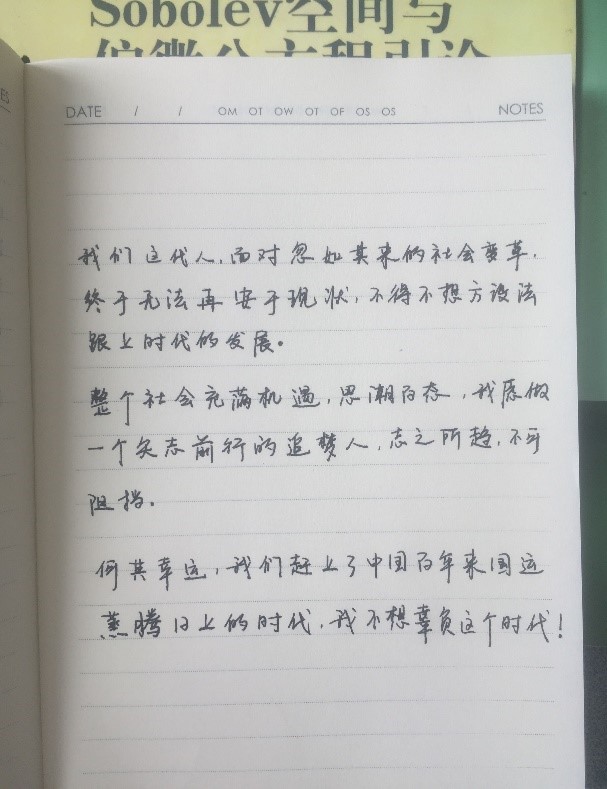 Sobolev空间与
偏微分方程引论
ES
DATE / / OM OT OW OT OF OS OS NOTES
我们这代人，面对忽如其来的社会变革，
终于无法再安于现状，不得不想方设法
跟上时代的发展。
整个社会充满机遇，思潮百态，我愿做
一个矢志前行的追梦人，志之所趋，不可
阻挡。
何其幸运，我们赶上了中国百年来国运
蒸腾日上的时代，我不想辜负这个时代！